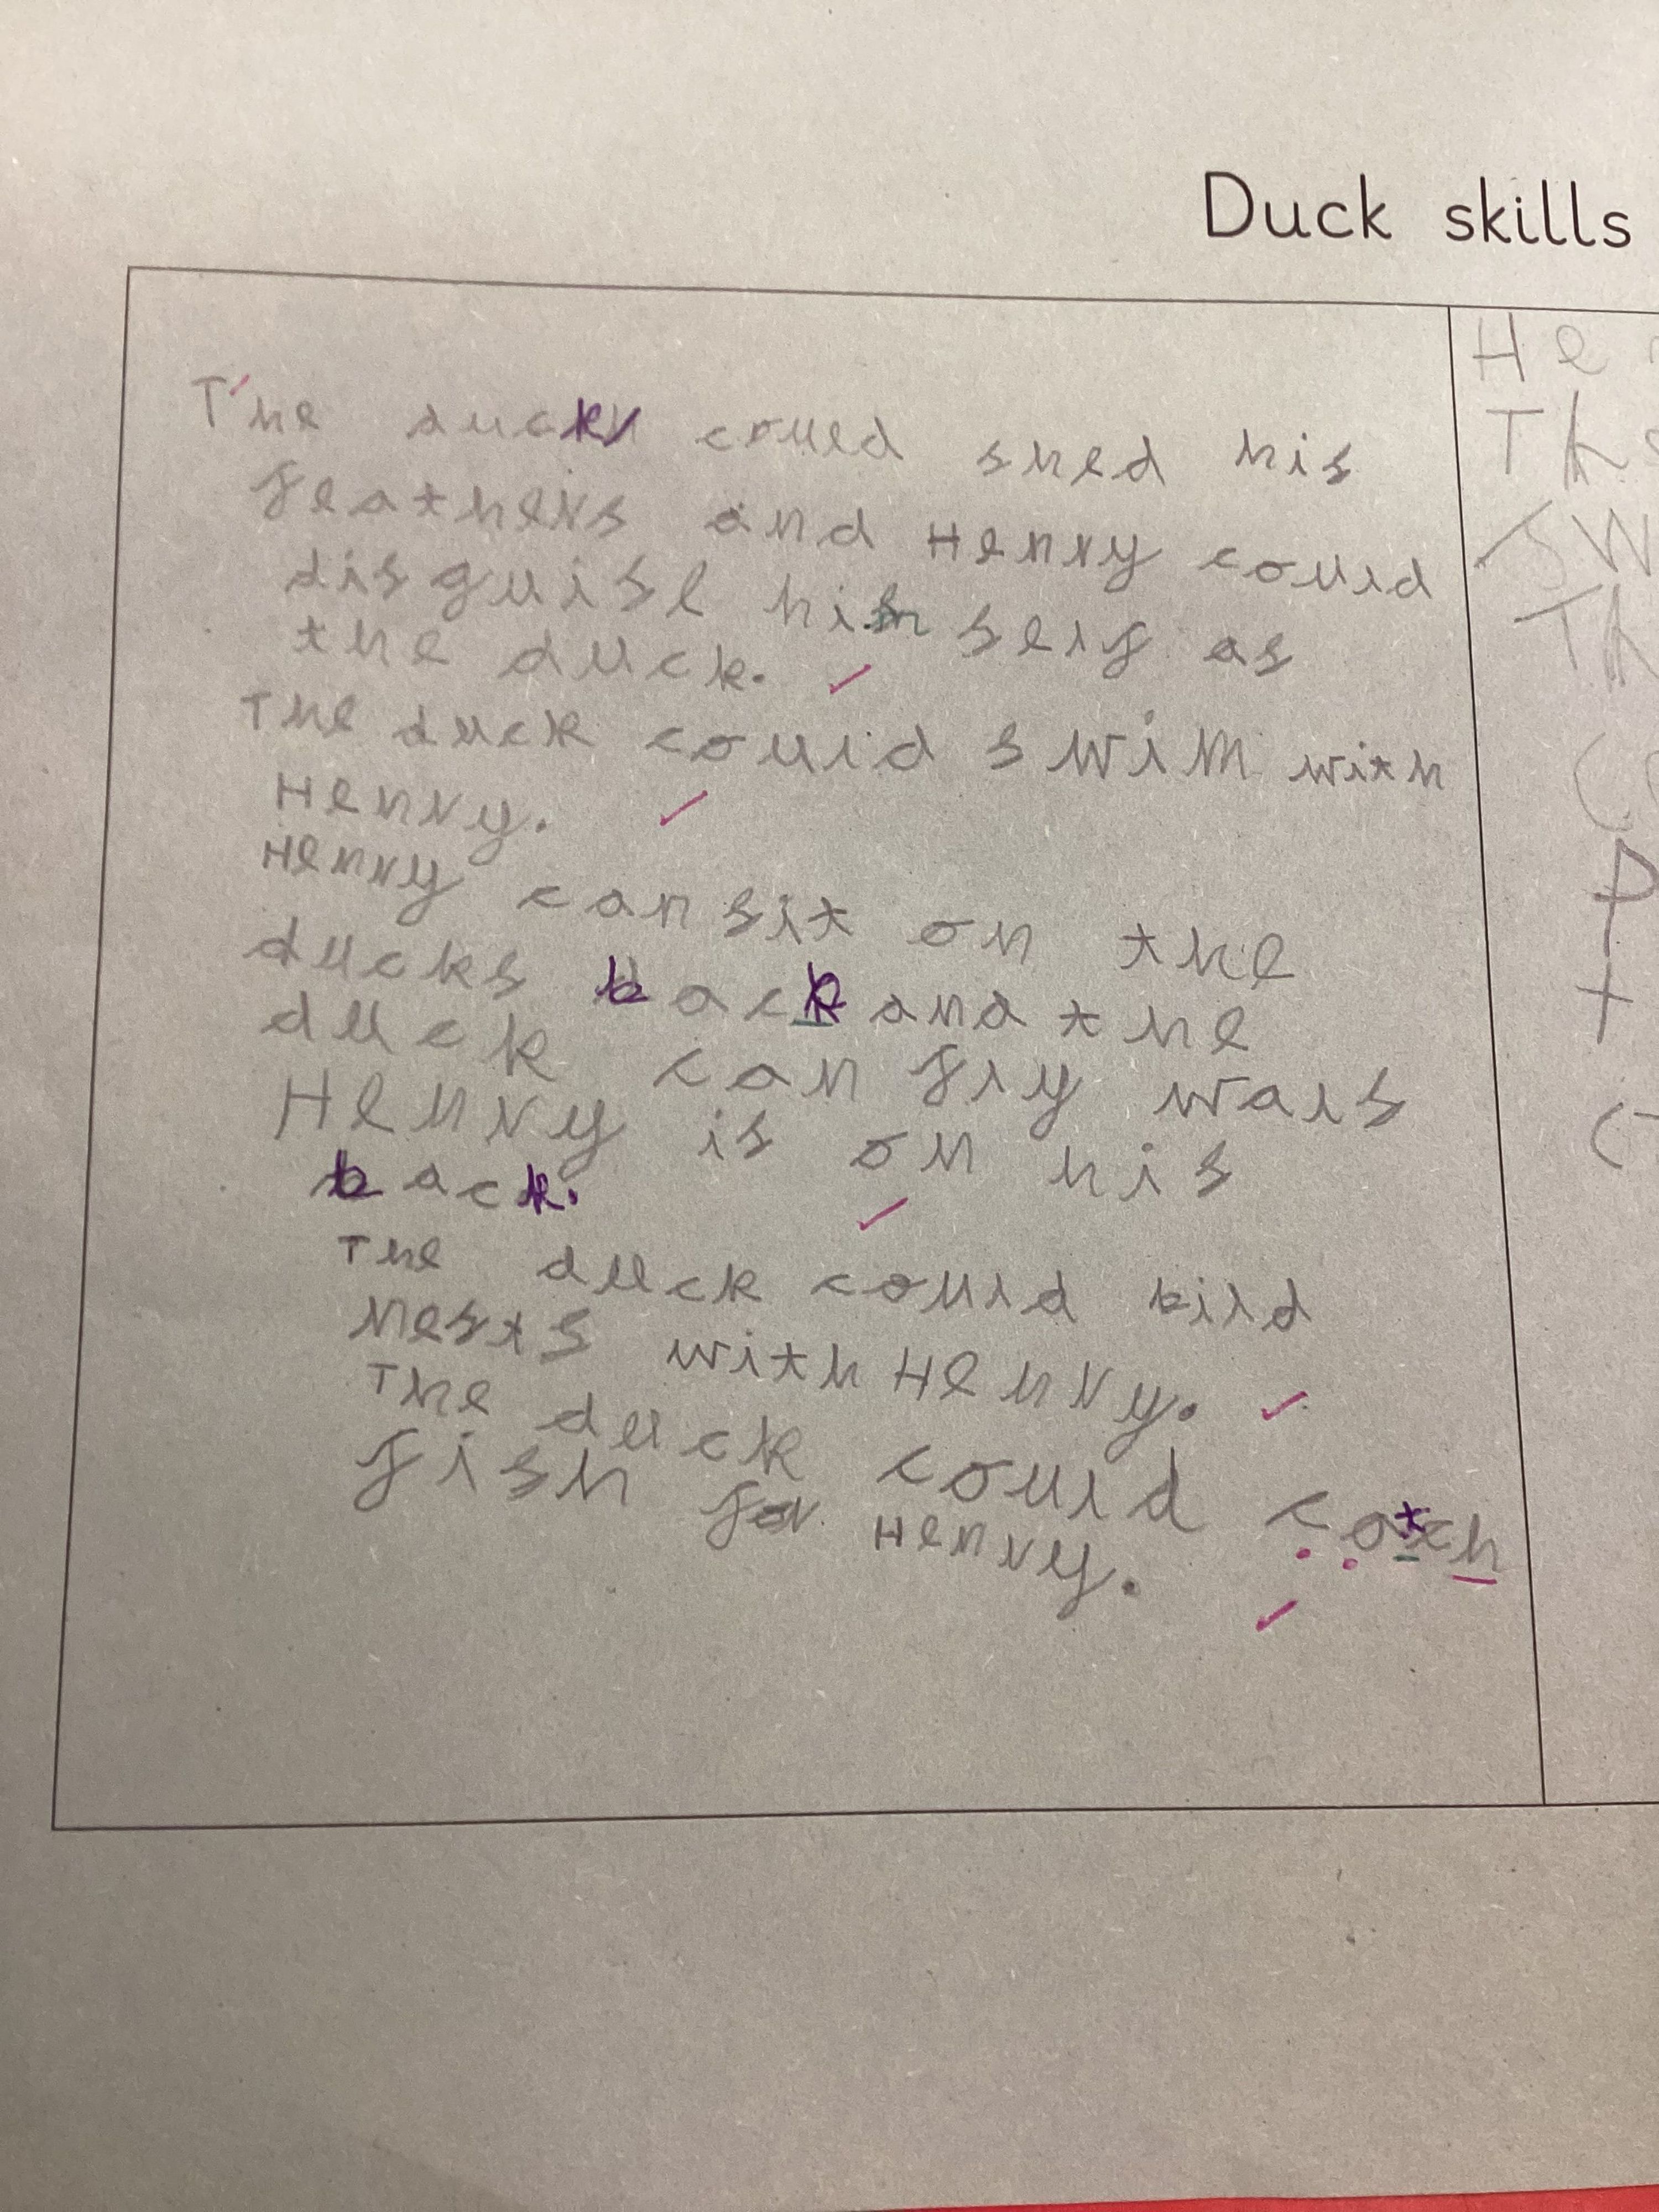 Duck skills
The duck could shed his
feathers and Henry could
disguise him self as
the duck.
The duck could swim with
Henry.
Henry can sit on the
ducks back and the
duck can fly wals
Henry is on his
back.
The duck could bild
nests with Henry.
The duck could catch
fish for Henry.